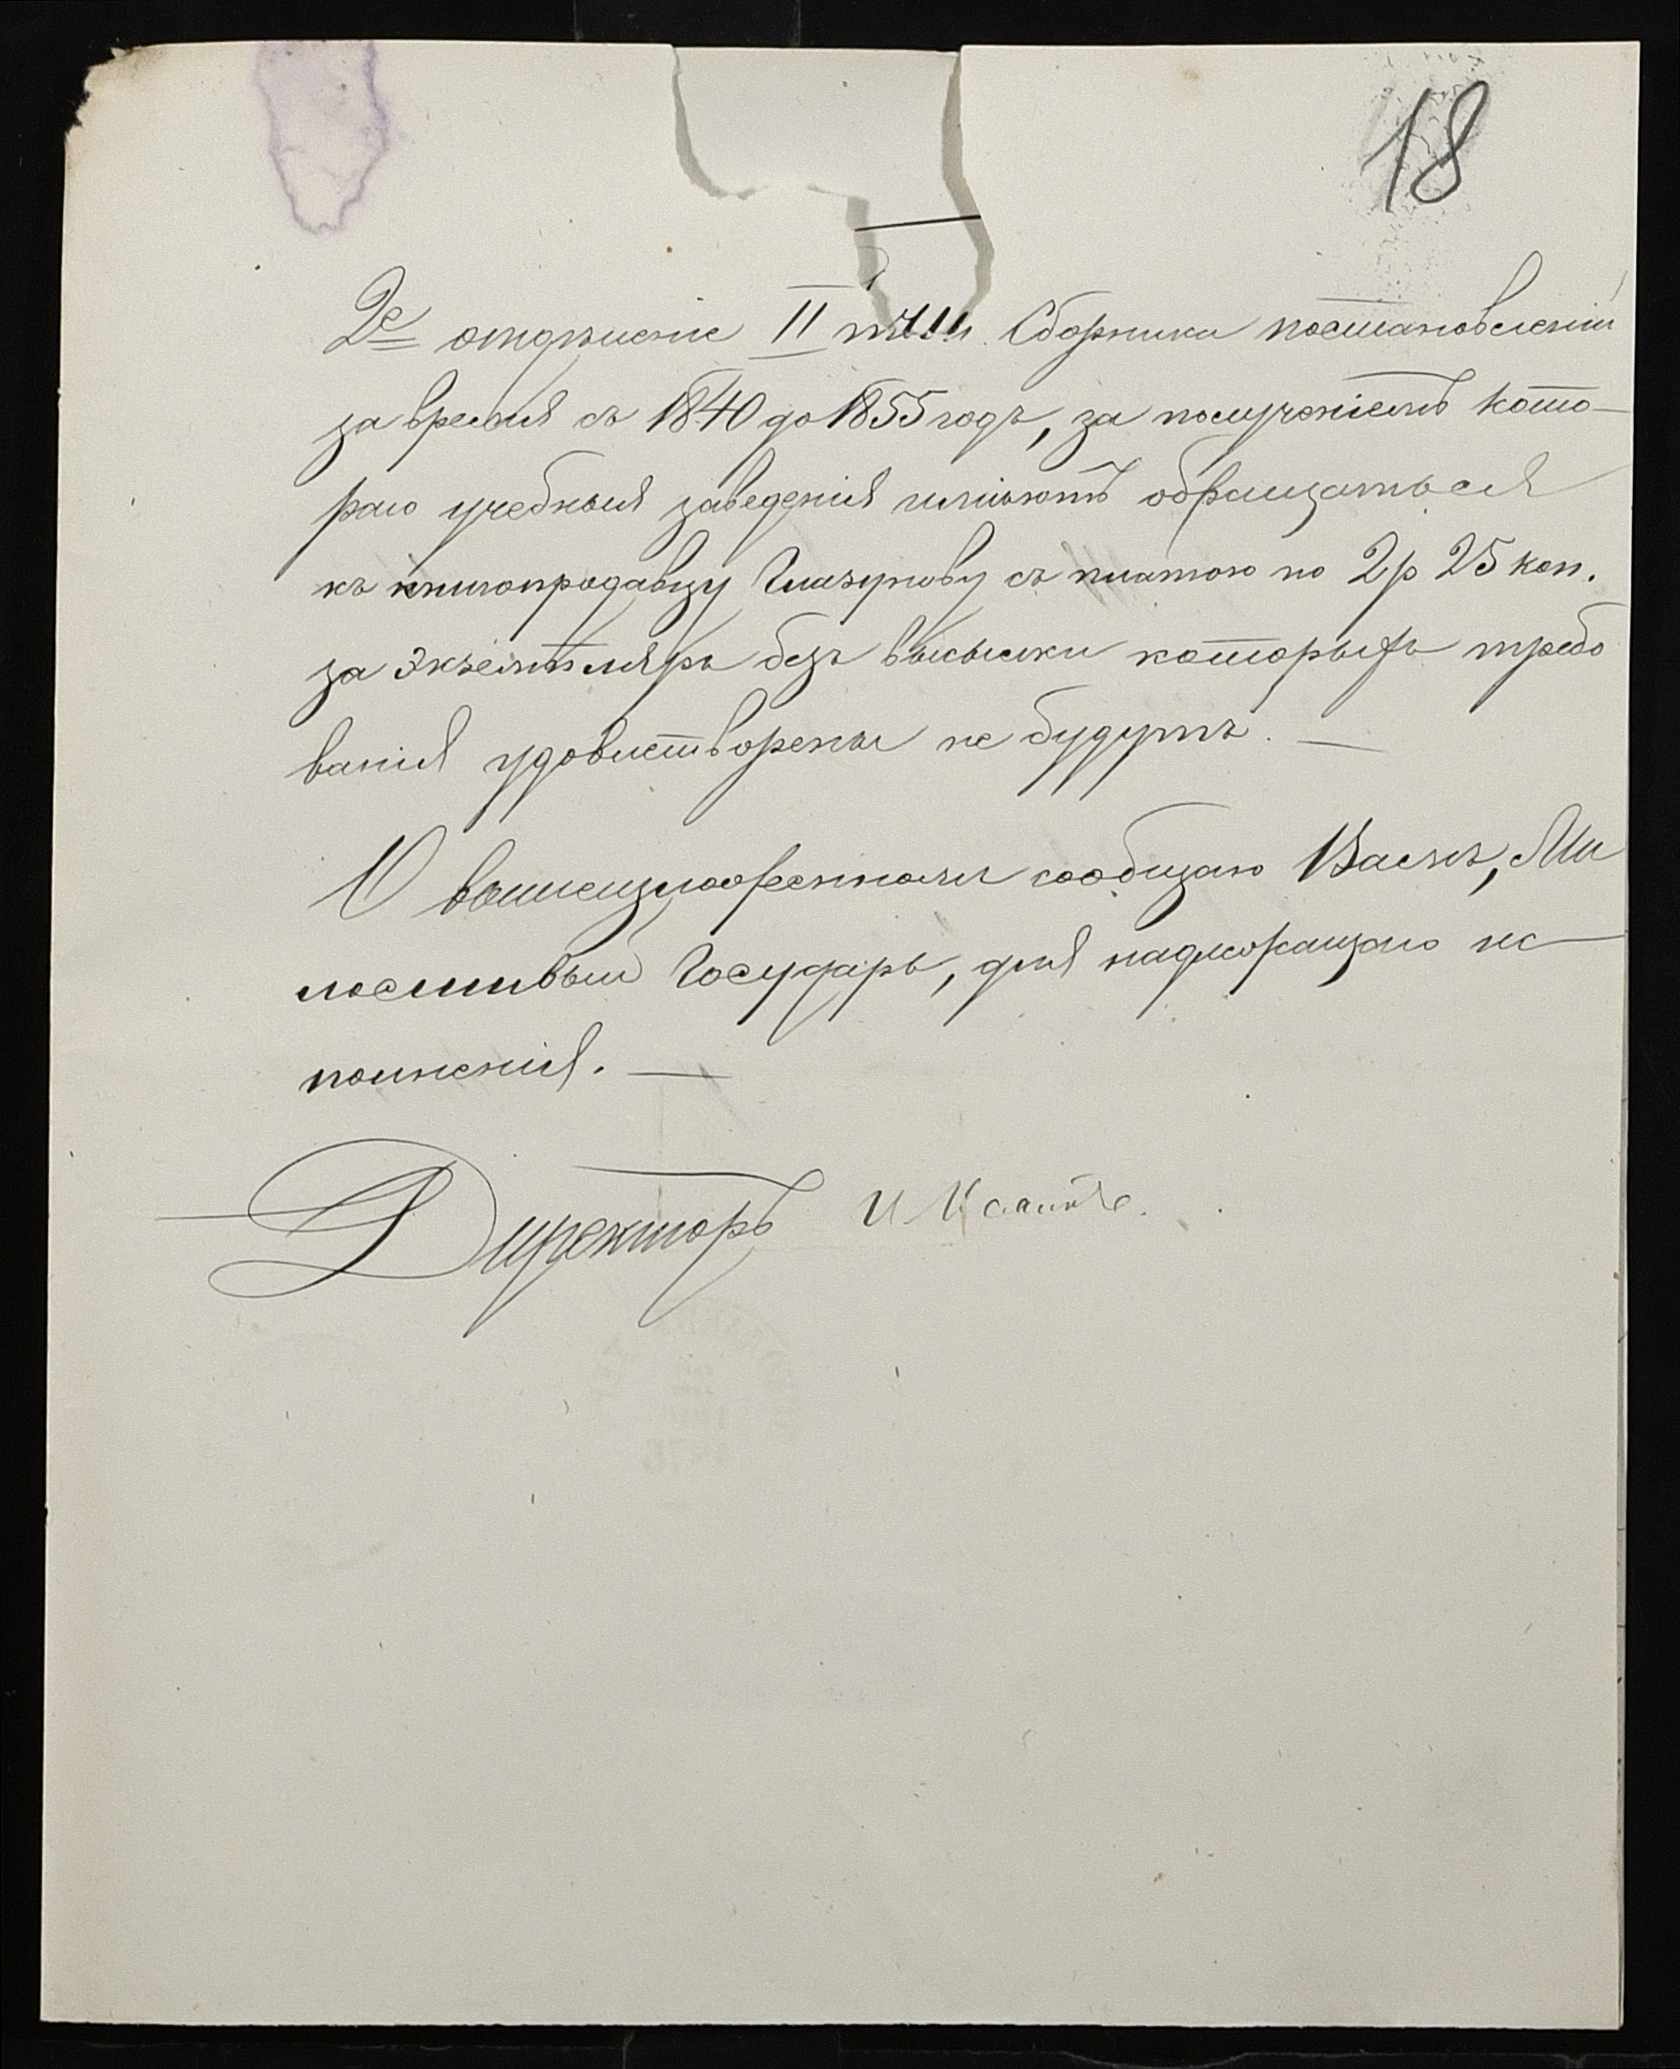 18
2е отдѣленіе II тома Сборника постановленій
за время съ 1840 до 1855 годъ, за полученіемъ кото-
раго учебныя заведенія имѣютъ обращаться
къ книгопродавцу Глазунову съ платою по 2 р 25 коп.
за экземпляръ безъ высылки которыхъ требо
ванія удовлетворены не будутъ. —
О вышеизложенномъ сообщаю Вамъ, Ми
лостивый Государь, для надлежащаго ис-
полненія. —
Директоръ И